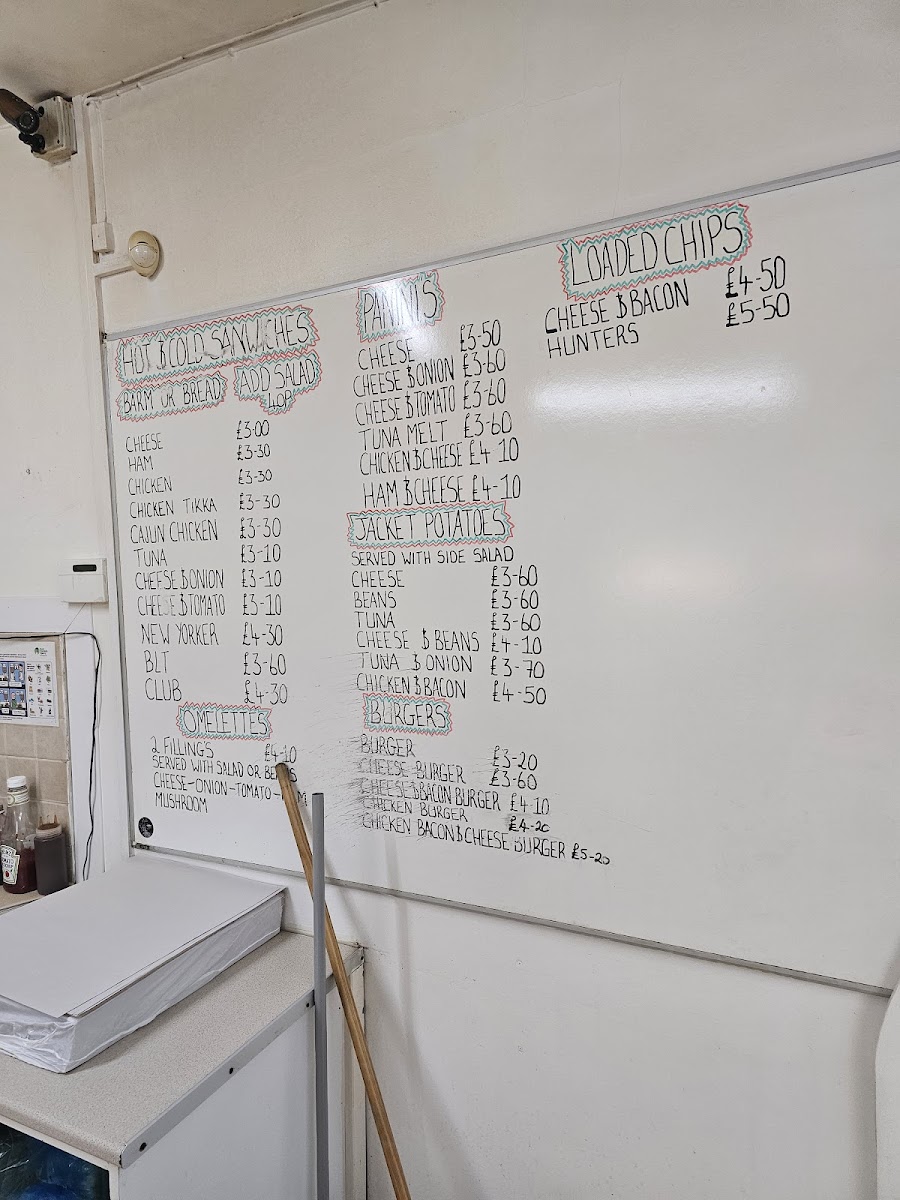 HOT & COLD SANWICHES
BARM OR BREAD
ADD SALAD
40P
CHEESE £3-00
HAM £3-30
CHICKEN £3-30
CHICKEN TIKKA £3-30
CAJUN CHICKEN £3-30
TUNA £3-10
CHEESE & ONION £3-10
CHEESE & TOMATO £3-10
NEW YORKER £4-30
BLT £3-60
CLUB £4-30
OMELETTES
2 FILLINGS £4-10
SERVED WITH SALAD OR BEANS
CHEESE-ONION-TOMATO-
MUSHROOM
PANINI'S
CHEESE £3-50
CHEESE & ONION £3-60
CHEESE & TOMATO £3-60
TUNA MELT £3-60
CHICKEN & CHEESE £4 10
HAM & CHEESE £4-10
JACKET POTATOES
SERVED WITH SIDE SALAD
CHEESE £3-60
BEANS £3-60
TUNA £3-60
CHEESE & BEANS £4-10
TUNA & ONION £3-70
CHICKEN & BACON £4-50
BURGERS
BURGER £3-20
CHEESE BURGER £3-60
CHEESE & BACON BURGER £4-10
CHICKEN BURGER £4-20
CHICKEN BACON & CHEESE BURGER £5-20
LOADED CHIPS
CHEESE & BACON £4-50
HUNTERS £5-50
HEINZ